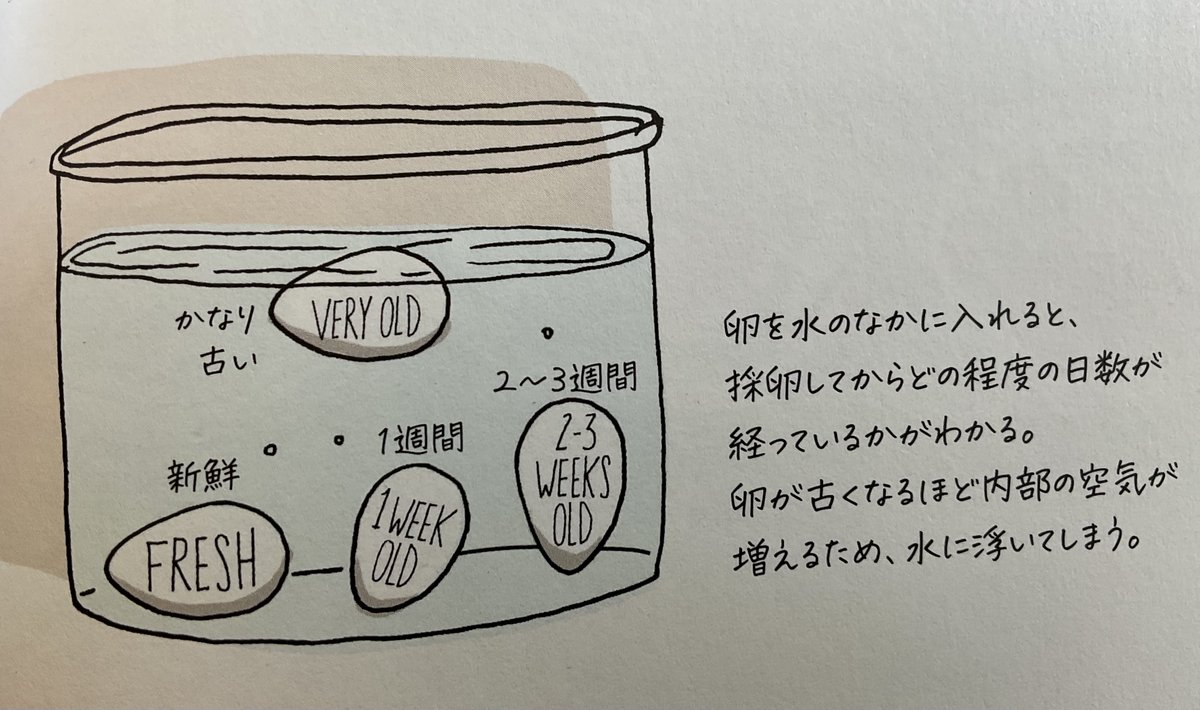 VERY OLD
かなり
古い
2〜3週間
2-3
WEEKS
OLD
1週間
1 WEEK
OLD
新鮮
FRESH
卵を水のなかに入れると、
採卵してからどの程度の日数が
経っているかがわかる。
卵が古くなるほど内部の空気が
増えるため、水に浮いてしまう。